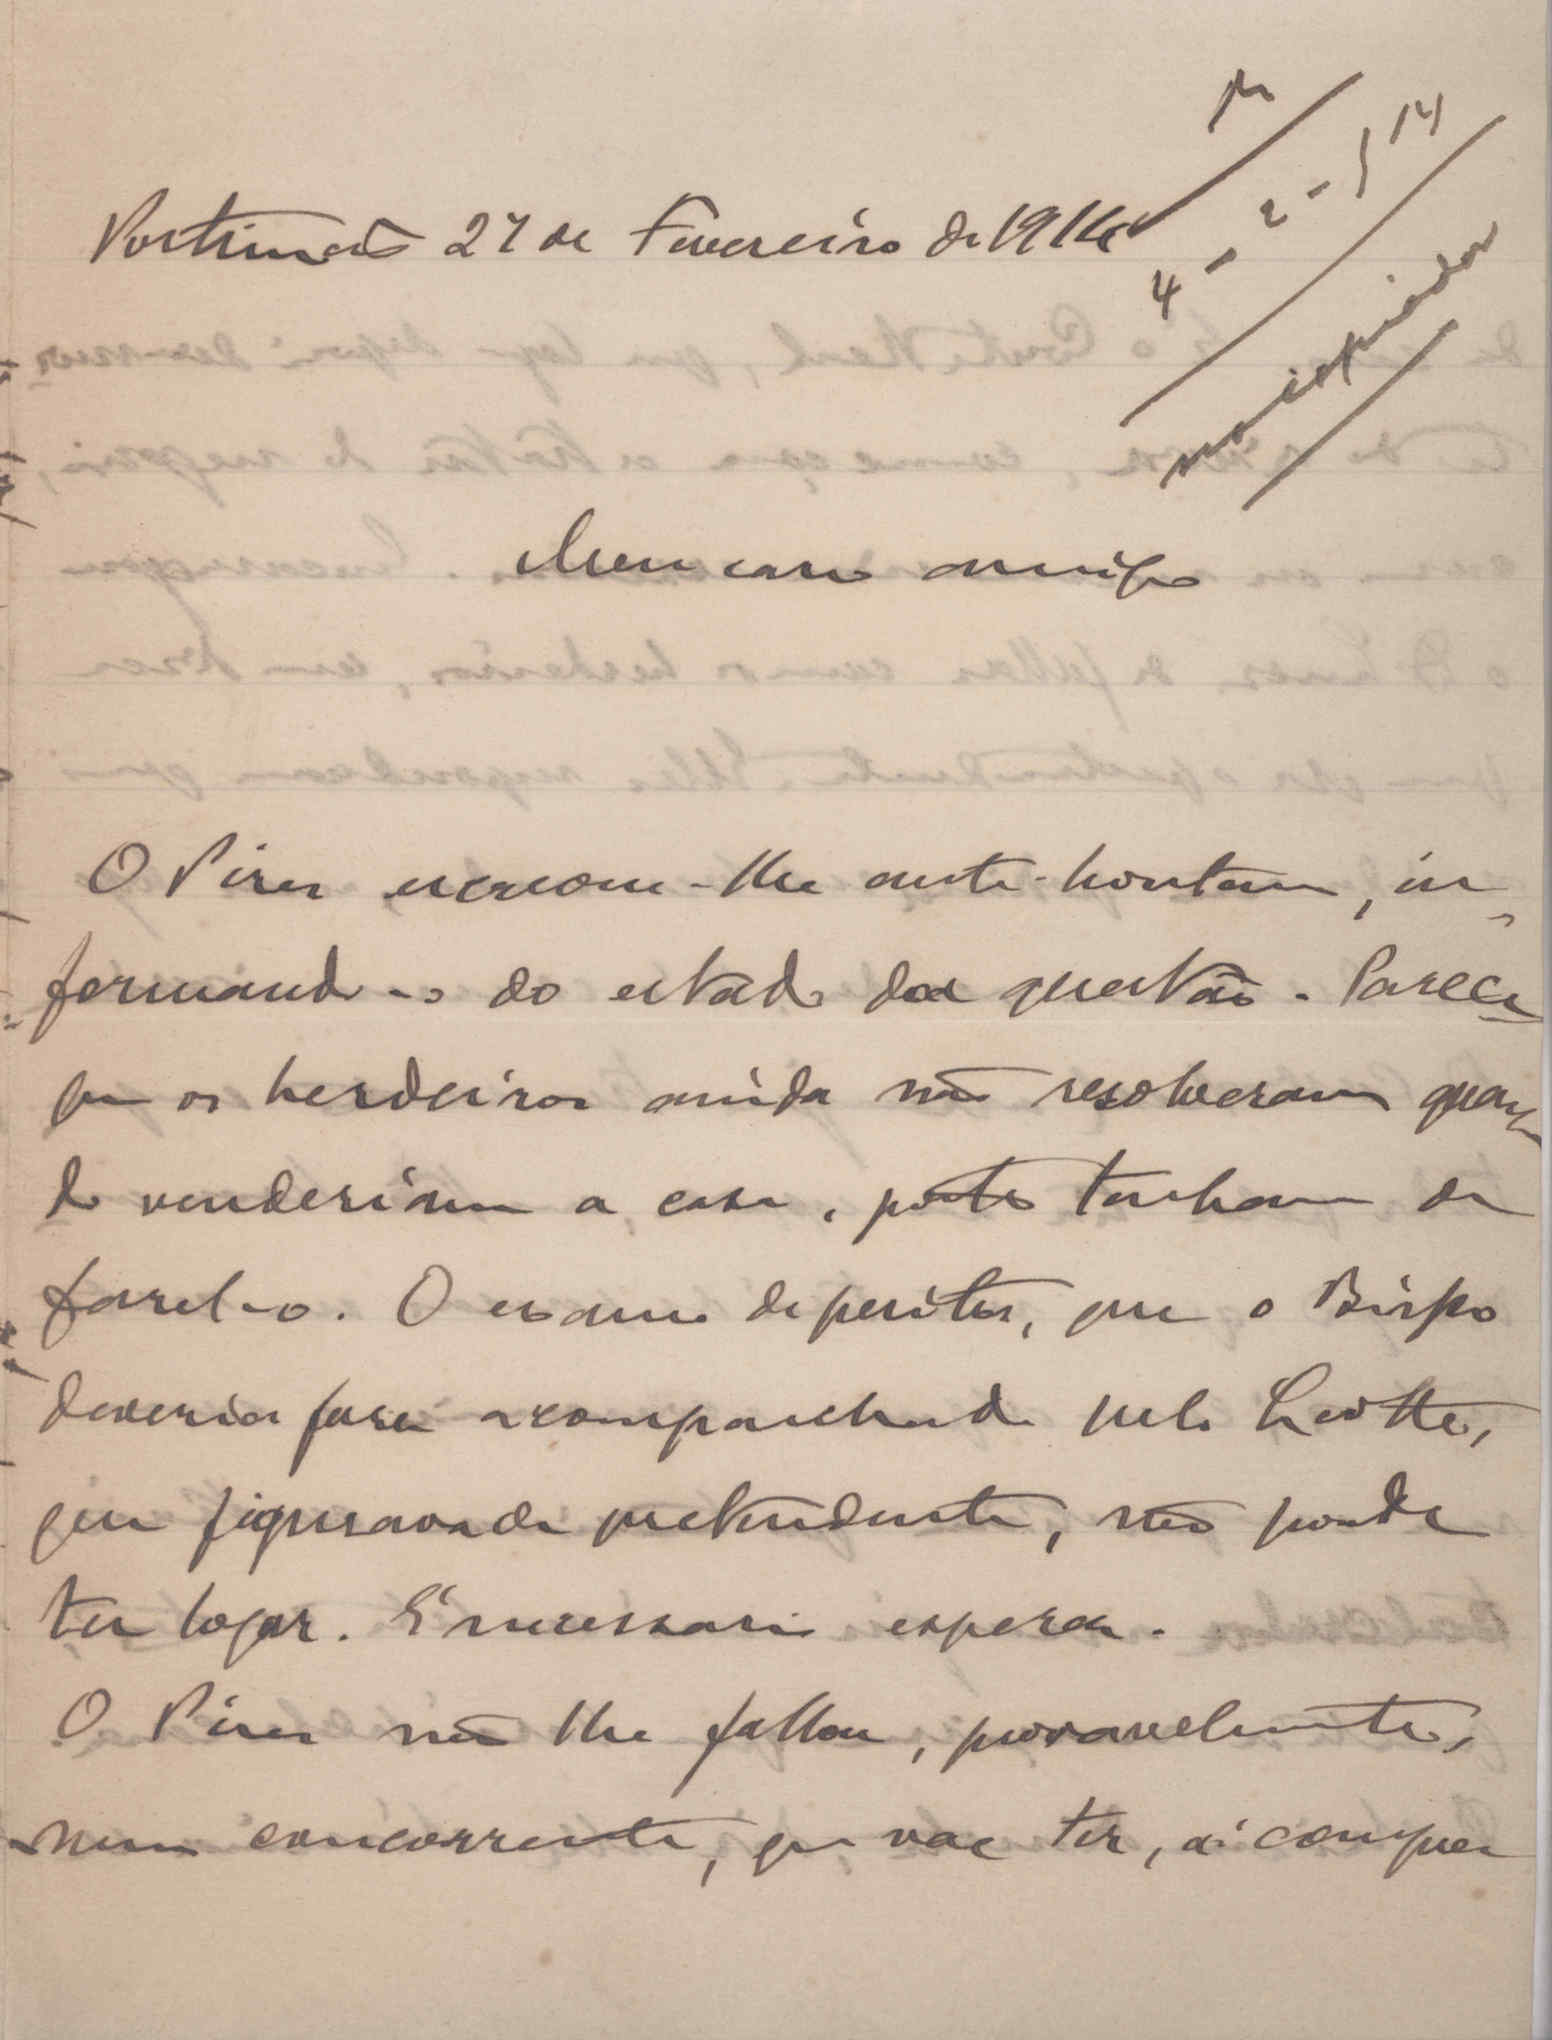 Portimão 27 de Fevereiro de 1914
4 - 2 - 14
Meu caro amigo
O Pires escreveu-lhe ante-hontem, in-
formando-o do estado da questão. Parece
que os herdeiros ainda não resolveram quan-
do venderiam a casa, posto tenham de
fazel-o. O exame de peritos, que o Bispo
deveria fazer acompanhado pelo Leotte,
que figurava de pretendente, não poude
ter logar. É necessario esperar.
O Pires não lhe fallou, provavelmente,
num concorrente, que vae ter, á compra